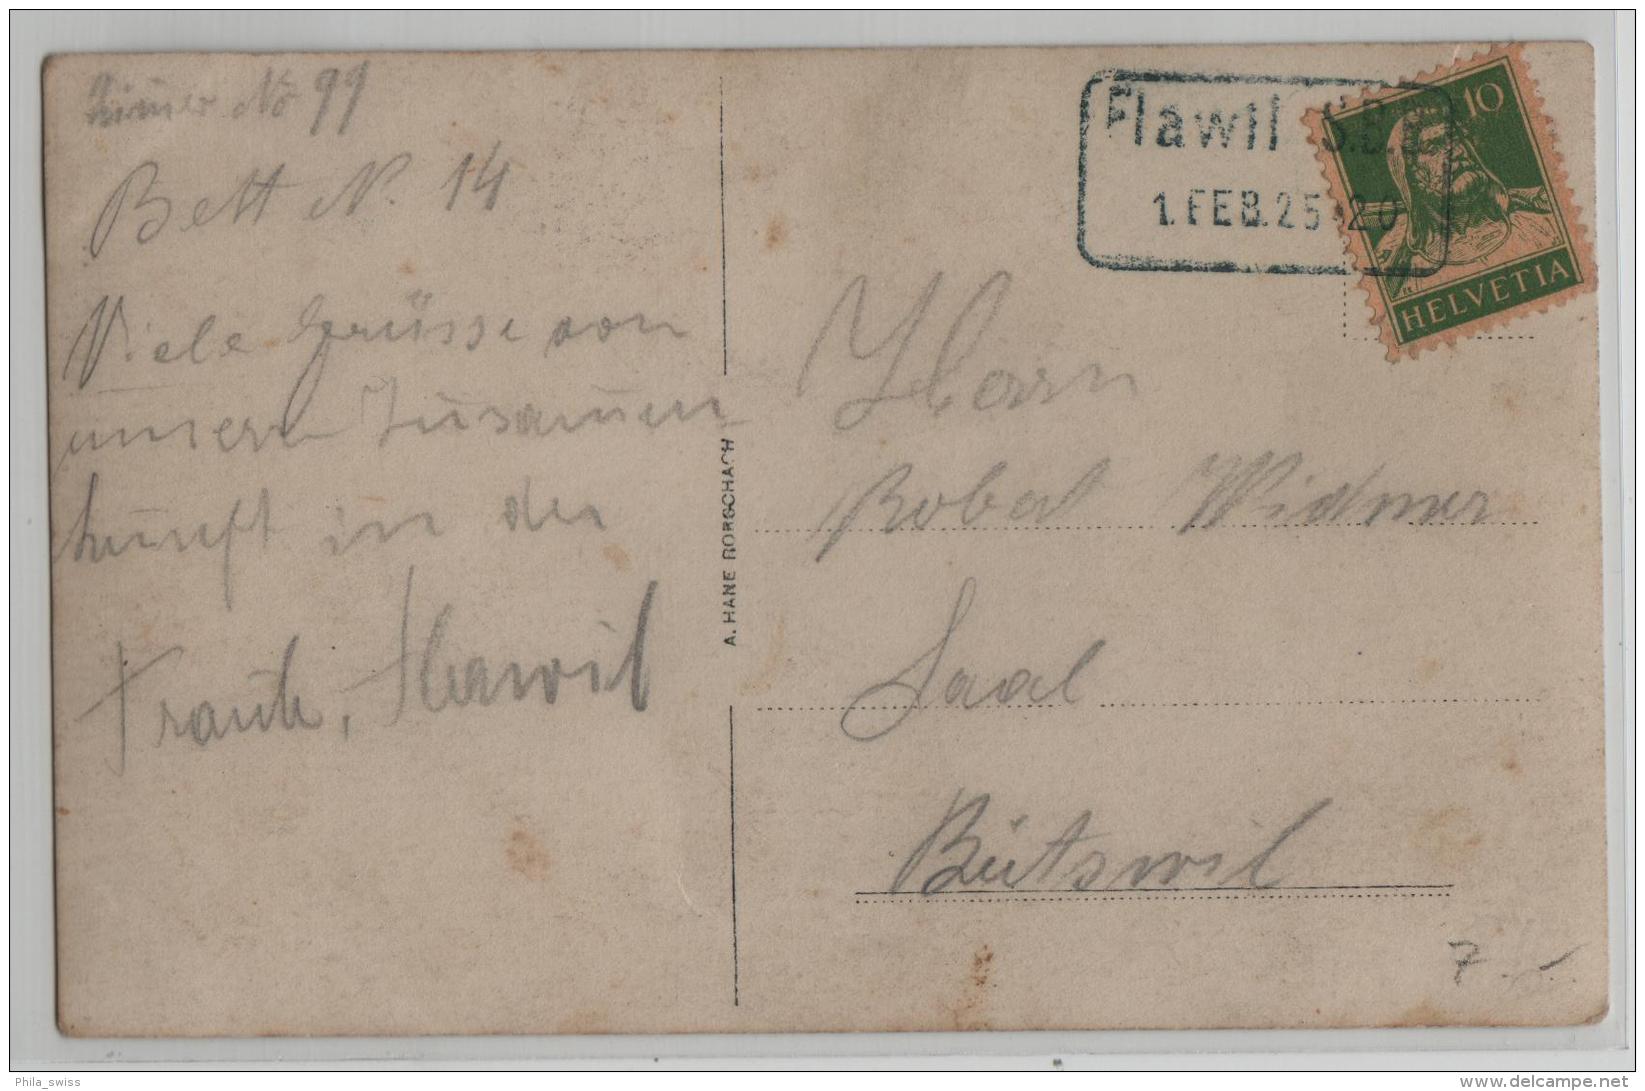 Zimmer No 99
Bett N. 14
Viele Grüsse von
unsern Zusammen
kunft in der
Traube, Flawil
A. HANE RORSCHACH
Flawil S.B.B.
1. FEB. 25 20
10
HELVETIA
Herrn
Robert Widmer
Saal
Bütswil
7.-
Phila_swiss
delcampe.net